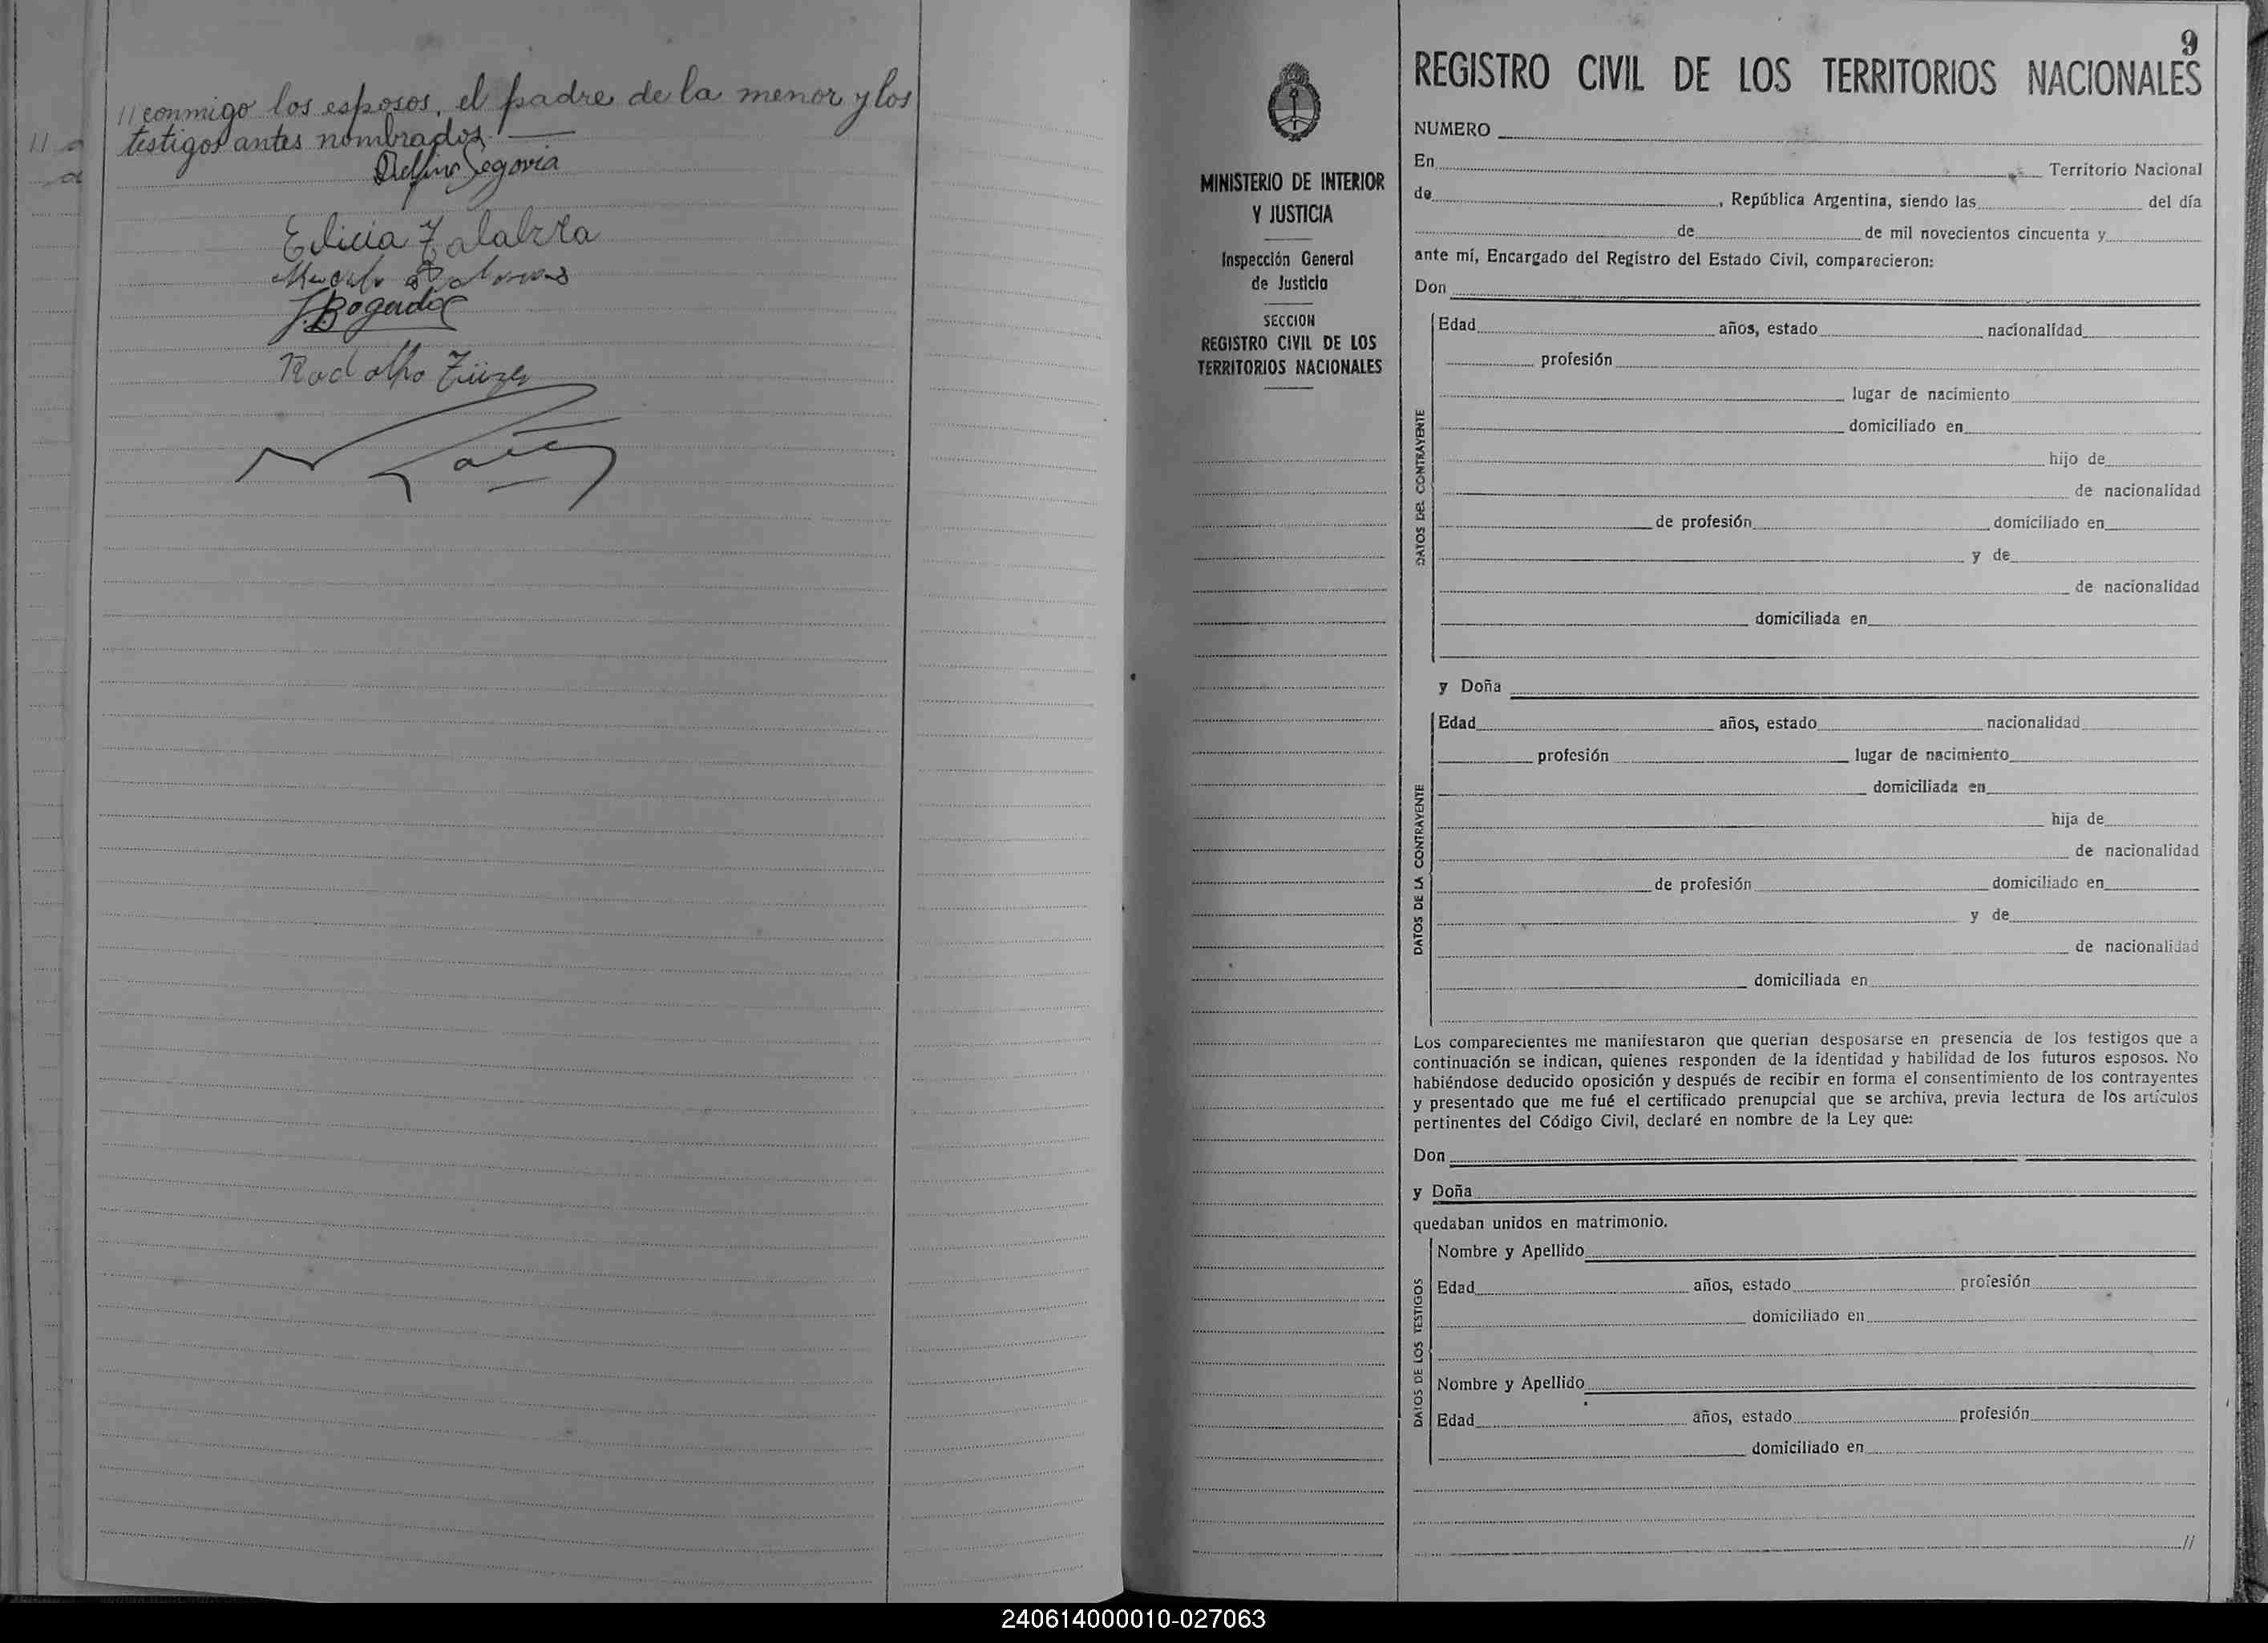 // conmigo los esposos, el padre de la menor y los
testigos antes nombrados.
Delfino Segovia
Elicia Zalabra
J. Bogado
Rodolfo
9
REGISTRO CIVIL DE LOS TERRITORIOS NACIONALES
MINISTERIO DE INTERIOR
Y JUSTICIA
Inspección General
de Justicia
SECCION
REGISTRO CIVIL DE LOS
TERRITORIOS NACIONALES
NUMERO
En Territorio Nacional
de , República Argentina, siendo las del día
de de mil novecientos cincuenta y
ante mí, Encargado del Registro del Estado Civil, comparecieron:
Don
DATOS DEL CONTRAYENTE
Edad años, estado nacionalidad
profesión
lugar de nacimiento
domiciliado en
hijo de
de nacionalidad
de profesión domiciliado en
y de
de nacionalidad
domiciliada en
y Doña
DATOS DE LA CONTRAYENTE
Edad años, estado nacionalidad
profesión lugar de nacimiento
domiciliada en
hija de
de nacionalidad
de profesión domiciliado en
y de
de nacionalidad
domiciliada en
Los comparecientes me manifestaron que querian desposarse en presencia de los testigos que a
continuación se indican, quienes responden de la identidad y habilidad de los futuros esposos. No
habiéndose deducido oposición y después de recibir en forma el consentimiento de los contrayentes
y presentado que me fué el certificado prenupcial que se archiva, previa lectura de los artículos
pertinentes del Código Civil, declaré en nombre de la Ley que:
Don
y Doña
quedaban unidos en matrimonio.
DATOS DE LOS TESTIGOS
Nombre y Apellido
Edad años, estado profesión
domiciliado en
Nombre y Apellido
Edad años, estado profesión
domiciliado en
//
240614000010-027063